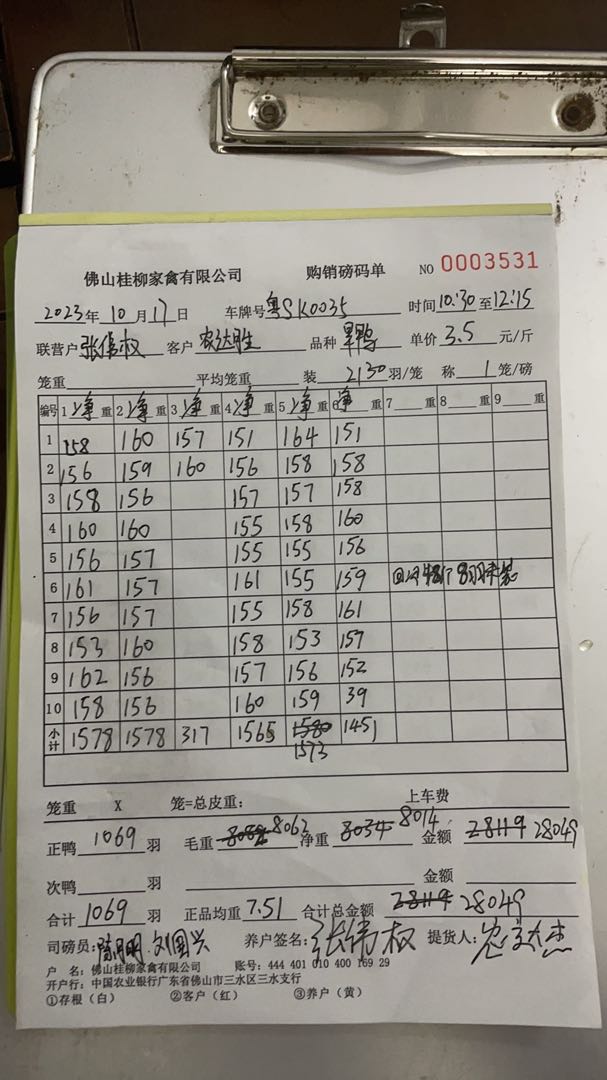 佛山桂柳家禽有限公司 购销磅码单 NO 0003531
2023年10月17日 车牌号 粤SK0035 时间 10:30 至 12:15
联营户 张伟权 客户 农达胜 品种 单价 3.5 元/斤
笼重 平均笼重 装 2130 羽/笼 称 1 笼/磅
编号 1 净 重 2 净 重 3 净 重 4 净 重 5 净 重 6 净 重 7 重 8 重 9 重
1 158 160 157 151 164 151
2 156 159 160 156 158 158
3 158 156 157 157 158
4 160 160 155 158 160
5 156 157 155 155 156
6 161 157 161 155 159
7 156 157 155 158 161
8 153 160 158 153 157
9 162 156 157 156 152
10 158 156 160 159 39
小计 1578 1578 317 1565 1580 1451
1573
笼重 X 笼=总皮重: 上车费
正鸭 1069 羽 毛重 8063 净重 8034 8014 金额 28119 28049
次鸭 羽 金额
合计 1069 羽 正品均重 7.51 合计总金额 28119 28049
司磅员: 刘国兴 养户签名: 张伟权 提货人:
户 名: 佛山桂柳家禽有限公司 账号: 444 401 010 400 169 29
开户行: 中国农业银行广东省佛山市三水区三水支行
①存根(白) ②客户(红) ③养户(黄)